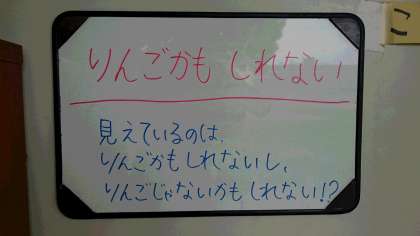 りんごかもしれない
見えているのは、
りんごかもしれないし、
りんごじゃないかもしれない!?